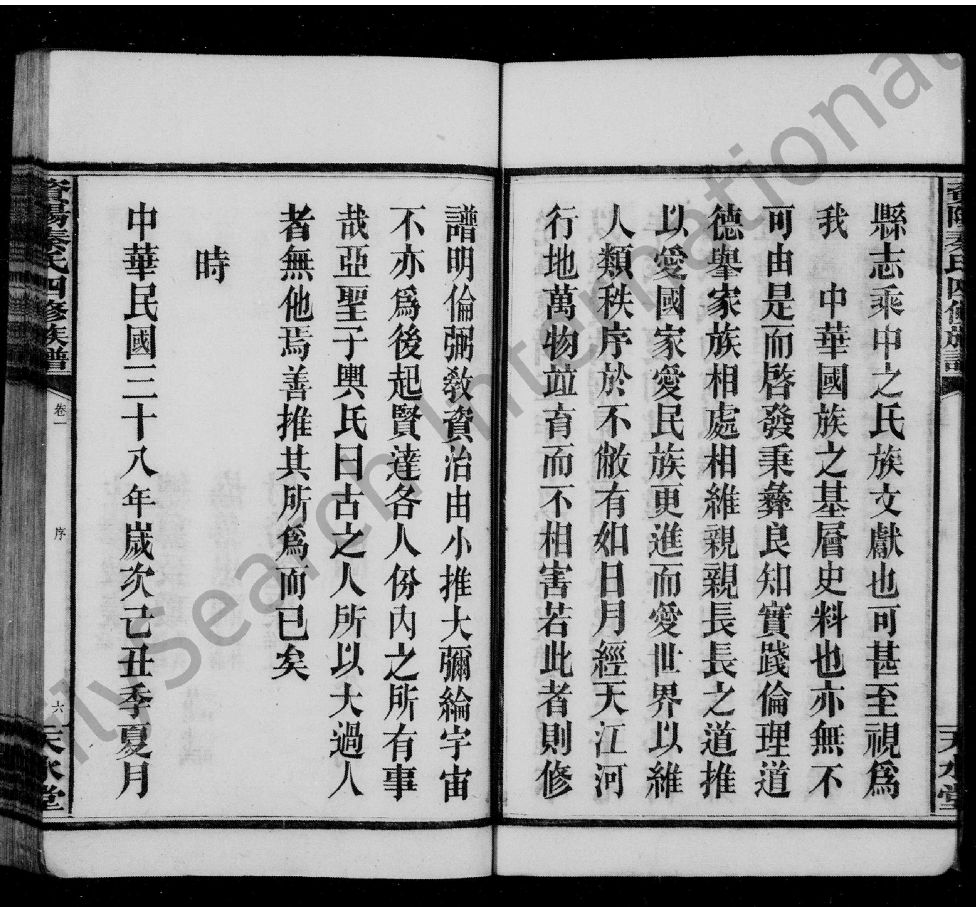 縣志乘中之氏族文獻也可甚至視爲
我　中華國族之基層史料也亦無不
可由是而啓發秉彝良知實踐倫理道
德舉家族相處相維親親長長之道推
以愛國家愛民族更進而愛世界以維
人類秩序於不敝有如日月經天江河
行地萬物竝育而不相害若此者則修
譜明倫弼敎資治由小推大彌綸宇宙
不亦爲後起賢達各人份內之所有事
哉亞聖子輿氏曰古之人所以大過人
者無他焉善推其所爲而已矣
時
中華民國三十八年歲次己丑季夏月
資陽秦氏四修族譜
卷一
序
六
天水堂